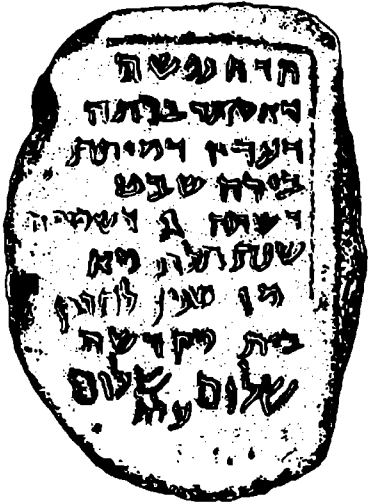 הדה נפשה
דאסתר ברתה
דעדיו דמיתת
בירח שבט
דשתה ג דשמיטה
שנת תלת מא
שנין לחורבן
בית מקדשה
שלום שלום
עלה